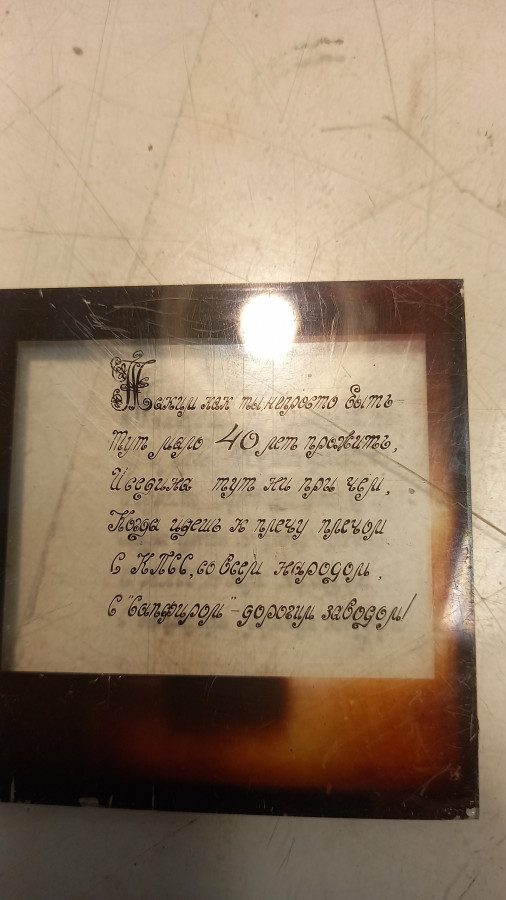 Таким как ты, непросто быть –
Тут мало 40 лет прожить,
И седина тут ни при чём,
Когда идёшь к плечу плечом
С КПСС, со всем народом,
С "Сапфиром" – дорогим заводом!